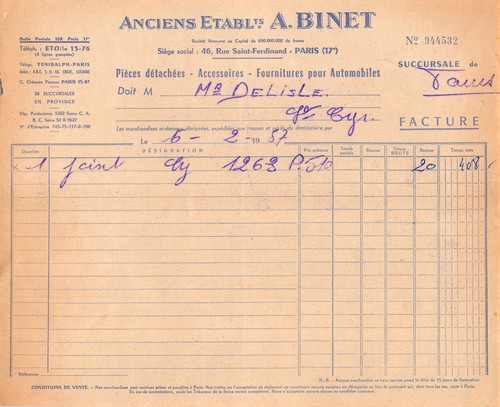 ANCIENS ETABL.TS A. BINET
Société Anonyme au Capital de 630.000.000 de francs
Siège social : 46, Rue Saint-Ferdinand - PARIS (17e)
Boîte Postale 109 Paris 17e
Téléph. : ETOile 15-76
(4 lignes groupées)
Télég. TENIBALPH-PARIS
C. Chèques Postaux PARIS 15-87
28 SUCCURSALES
EN PROVINCE
No 944532
SUCCURSALE de
Pièces détachées - Accessoires - Fournitures pour Automobiles
Doit M Mr DELISLE.
St Cyr.
FACTURE
Les marchandises ci-dessous désignées, expédiées aux risques et périls du destinataire par
Le 6 - 2 - 1957
Quantités
DÉSIGNATION
Prix unitaires
Totaux partiels
Totaux BRUTS
Remise
Totaux nets
1 joint Cy 1263 P. 510 20 408
Références
N.-B. - Aucune marchandise ne sera reprise passé le délai de 15 jours de facturation
CONDITIONS DE VENTE. - Nos marchandises sont vendues prises et payables à Paris.